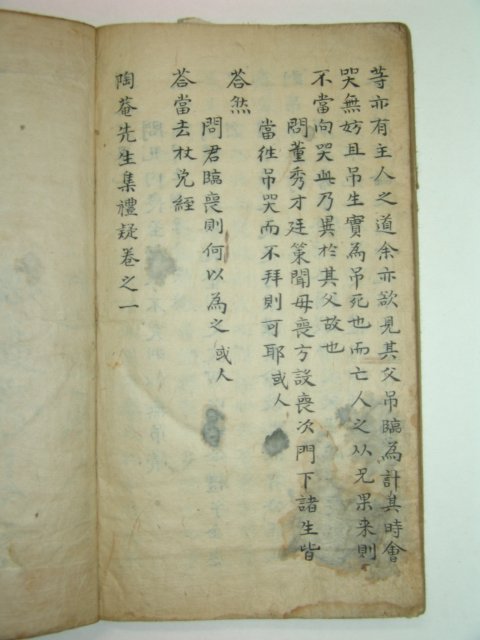 等亦有主人之道余亦欲見其父吊臨為計其時會
哭無妨且吊生實為吊死也而亡人之从兄果来則
不當向哭此乃異於其父故也
問董秀才廷策聞毋喪方設喪次門下諸生皆
當徃吊哭而不拜則可耶或人
答然
問君臨喪則何以為之或人
答當去杖免絰
陶菴先生集禮疑卷之一